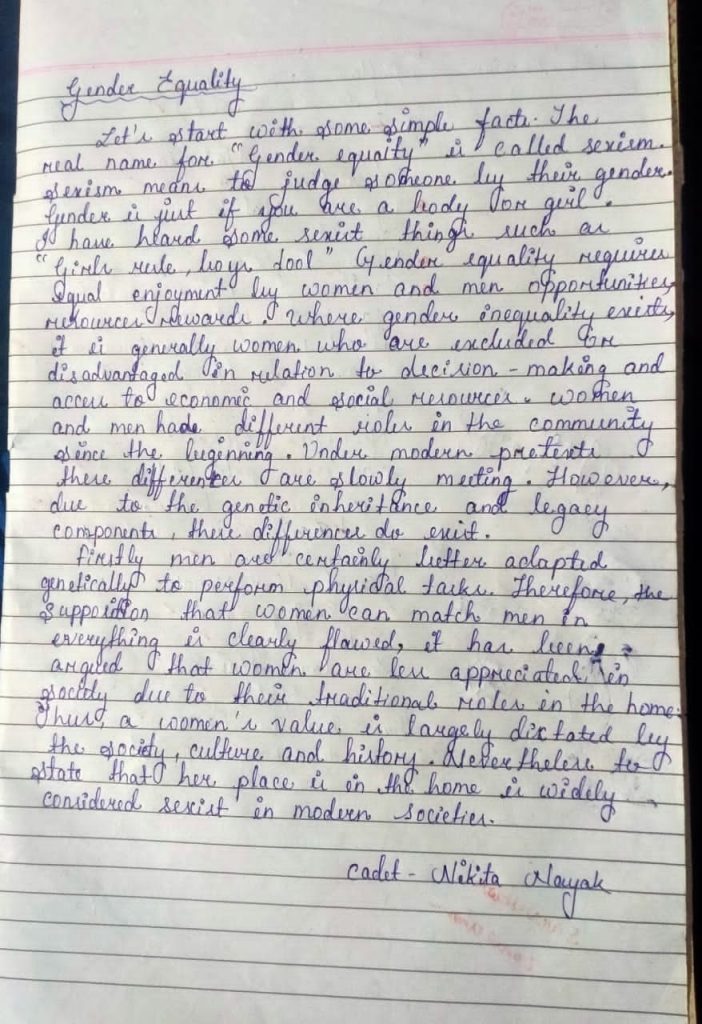 Gender Equality
Let's start with some simple facts. The
real name for "Gender equaity" is called sexism.
Sexism means to judge someone by their gender.
Gender is just if you are a body or girl.
I have heard some sexist things such as
"Girls rule, boys dool" Gender equality requires
equal enjoyment by women and men opportunities,
resources rewards. Where gender inequality exists,
it is generally women who are excluded or
disadvantaged in relation to decision-making and
access to economic and social resources. women
and men hade different roles in the community
since the beginning. Under modern pretexts
these differences are slowly meeting. However,
due to the genetic inheritance and legacy
components, these differences do exist.
firstly men are certainly better adapted
genetically to perform physical tasks. Therefore, the
supposition that women can match men in
everything is clearly flawed, it has been
argued that women are less appreciated in
society due to their traditional roles in the home.
Thus, a women's value is largely dictated by
the society, culture and history. Nevertheless to
state that her place is in the home is widely
considered sexist in modern societies.
Cadet - Nikita Nayak